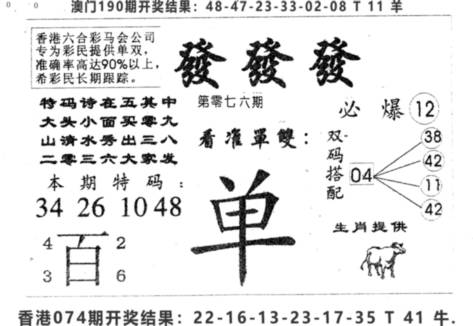 澳门190期开奖结果：48-47-23-33-02-08 T 11 羊
香港六合彩马会公司
专为彩民提供单双，
准确率高达90%以上，
希彩民长期跟踪。
發 發 發
特码诗在五其中
大头小面买零九
山清水秀出三八
二零三六大家发
第零七六期
看准單雙：
必爆 12
双码搭配
04
38
42
11
42
本期特码：
34 26 10 48
单
4 百 2
3 6
生肖提供
香港074期开奖结果：22-16-13-23-17-35 T 41 牛.